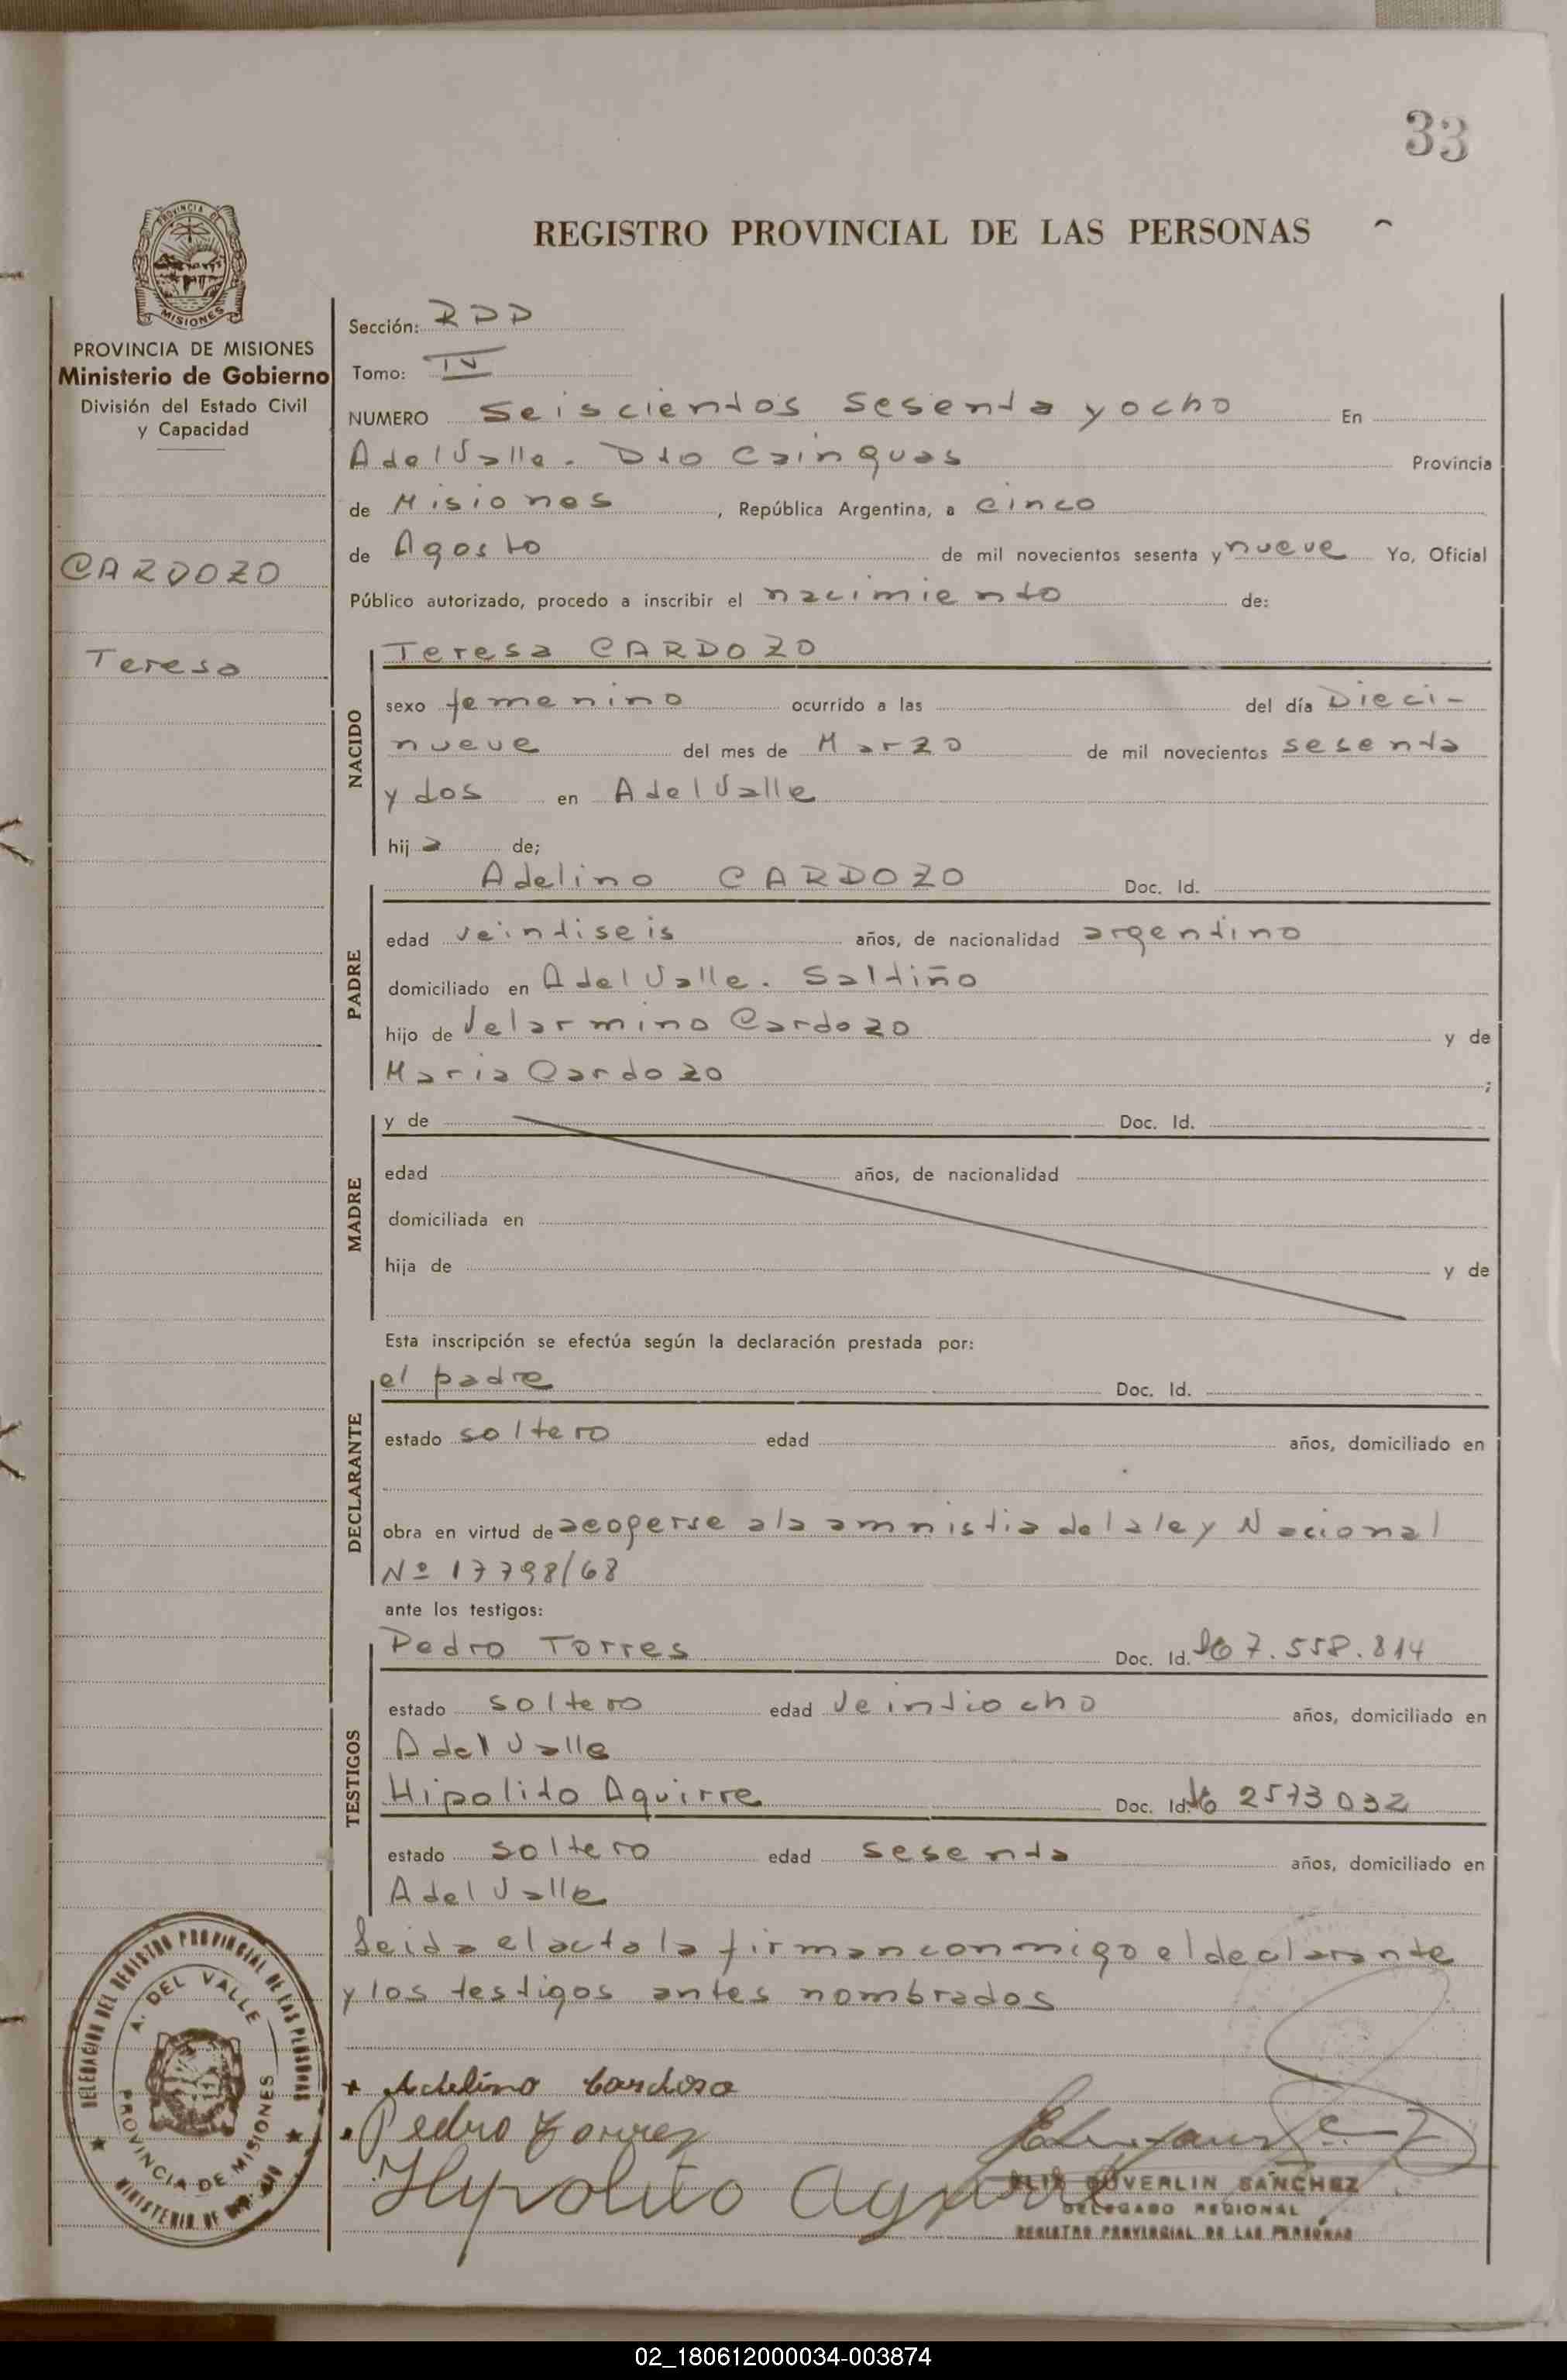 33
REGISTRO PROVINCIAL DE LAS PERSONAS
PROVINCIA DE MISIONES
PROVINCIA DE MISIONES
Ministerio de Gobierno
División del Estado Civil
y Capacidad
CARDOZO
Teresa
Sección: RDD
Tomo: IV
NUMERO Seiscientos sesenta y ocho En
A del Valle. Dto Cainguas Provincia
de Misiones, República Argentina, a cinco
de Agosto de mil novecientos sesenta y nueve Yo, Oficial
Público autorizado, procedo a inscribir el nacimiento de:
NACIDO
Teresa CARDOZO
sexo femenino ocurrido a las del día Dieci-
nueve del mes de Marzo de mil novecientos sesenta
y dos en A del Valle
hija de;
PADRE
Adelino CARDOZO Doc. Id.
edad veintiseis años, de nacionalidad argentino
domiciliado en A del Valle. Saltiño
hijo de Velarmino Cardozo y de
Maria Cardozo;
MADRE
y de Doc. Id.
edad años, de nacionalidad
domiciliada en
hija de y de
Esta inscripción se efectúa según la declaración prestada por:
DECLARANTE
el padre Doc. Id.
estado soltero edad años, domiciliado en
obra en virtud de acogerse a la amnistia de la ley Nacional
Nº 17798/68
ante los testigos:
TESTIGOS
Pedro Torres Doc. Id. 7.558.814
estado soltero edad veintiocho años, domiciliado en
A del Valle
Hipolito Aguirre Doc. Id. 2573032
estado soltero edad sesenta años, domiciliado en
A del Valle
Leida el acta la firman conmigo el declarante
y los testigos antes nombrados
Adelino Cardoso
Pedro Torrez
Hypolito Aguirre
DUVERLIN SANCHEZ
DELEGADO REGIONAL
REGISTRO PROVINCIAL DE LAS PERSONAS
DELEGACION DEL REGISTRO PROVINCIAL DE LAS PERSONAS
A. DEL VALLE
PROVINCIA DE MISIONES
MINISTERIO DE
02_180612000034-003874